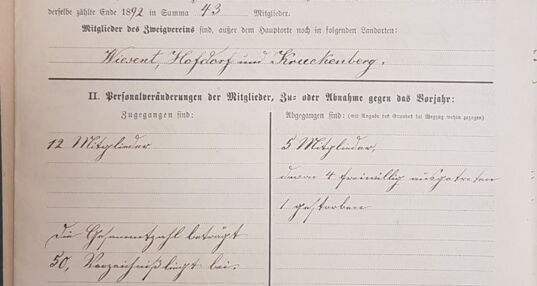 derselbe zählte Ende 1892 in Summa 43 Mitglieder.
Mitglieder des Zweigvereins sind, außer dem Hauptorte noch in folgenden Landorten:
Wiesent, Hofdorf und Kruckenberg.
II. Personalveränderungen der Mitglieder, Zu- oder Abnahme gegen das Vorjahr:
Zugegangen sind:
12 Mitglieder
Die Gesammtzahl beträgt
50, Verzeichniß liegt bei.
Abgegangen sind: (mit Angabe des Grundes bei Wegzug wohin gezogen)
5 Mitglieder,
davon 4 freiwillig ausgetreten
1 gestorben